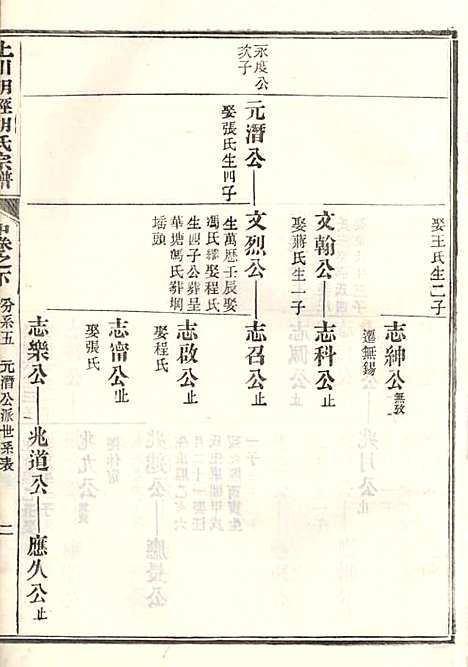 娶王氏生二子
志紳公無攷
遷無錫
文翰公
娶蔣氏生一子
志科公止
永度公
次子
元潛公
娶張氏生四子
文烈公
生萬歷壬辰娶
馮氏繼娶程氏
生四子公葬呈
華塘馮氏葬堈
瑶頭
志召公止
志啟公止
娶程氏
志甯公止
娶張氏
志樂公
兆道公
應久公止
上川明經胡氏宗譜
中卷之下
分系五
元潛公派世系表
二